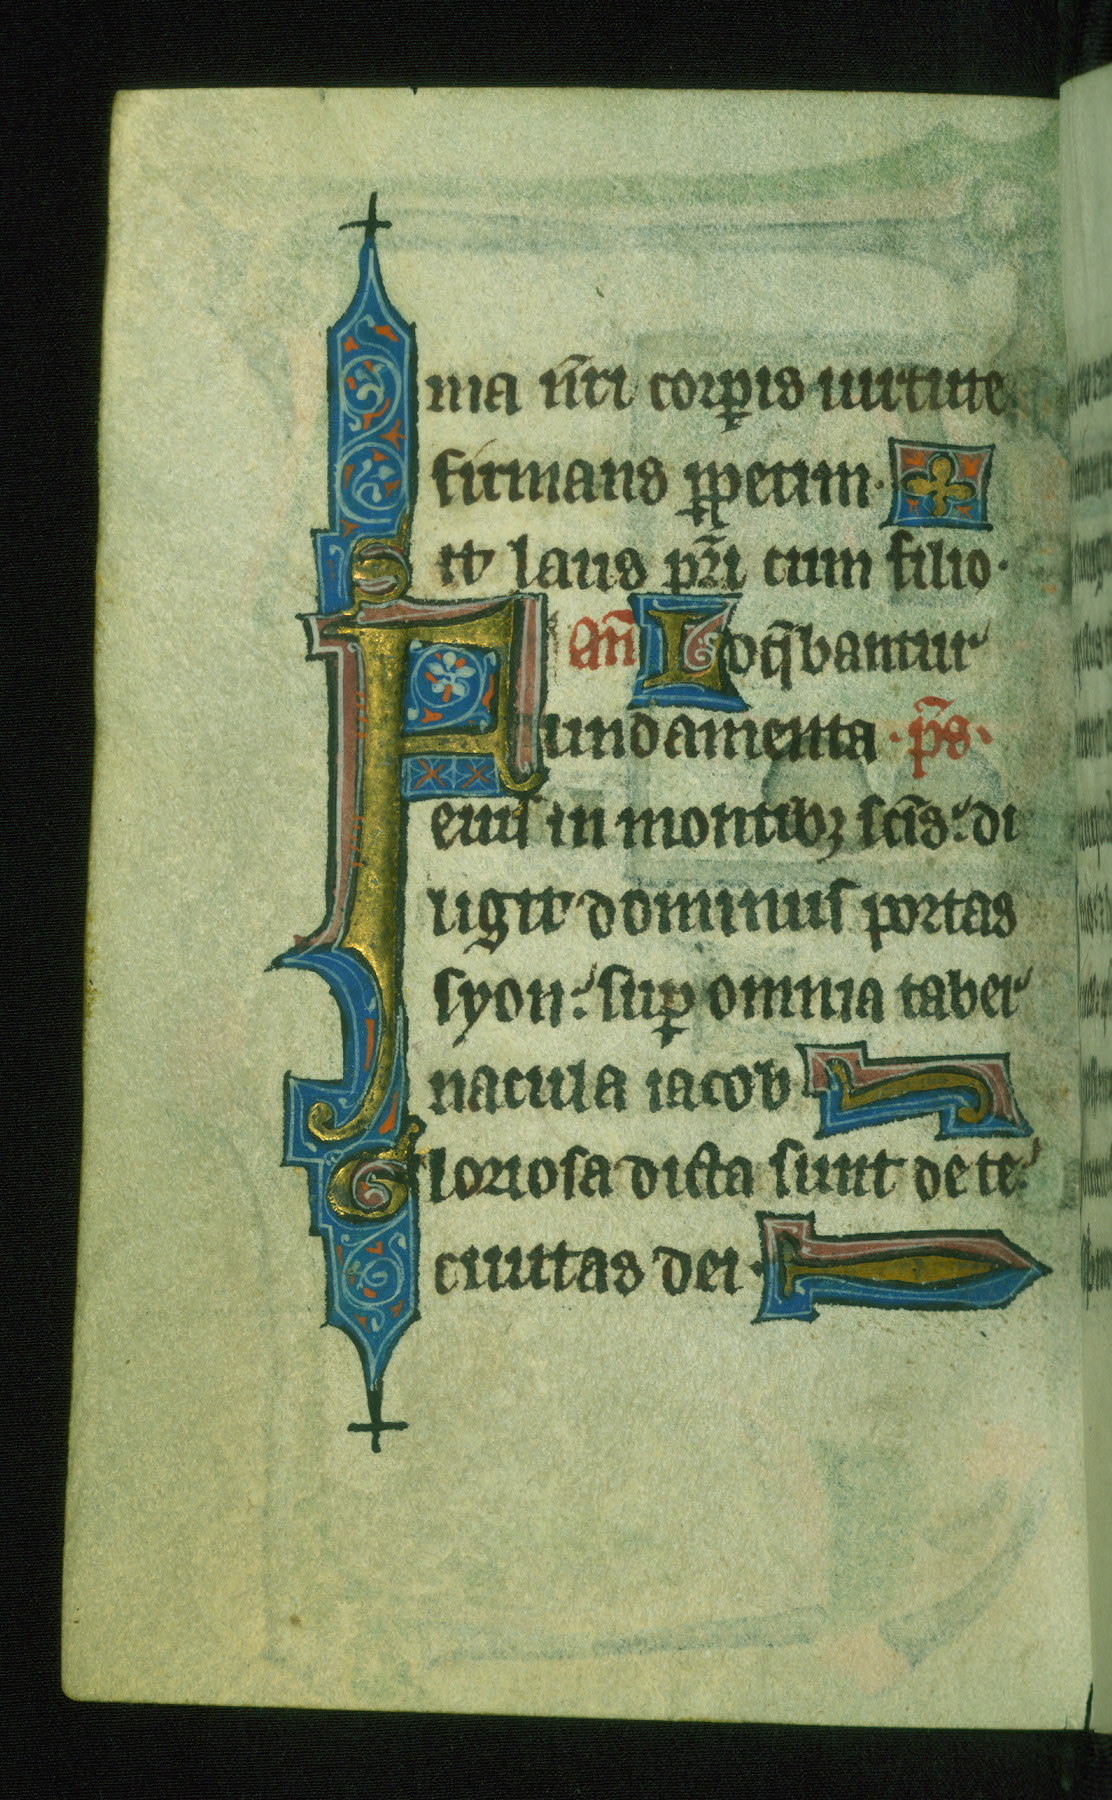 ma n̄ri corꝑis uirtute
firmans ꝑpetim·
Sit laus pr̄i cum filio·
an̄ Loq̄bantur
Fundamenta· p̄s·
eius in montibꝫ scīs: di
ligit dominus portas
syon: suꝑ omnia taber
nacula iacob
Gloriosa dicta sunt de te:
ciuitas dei·